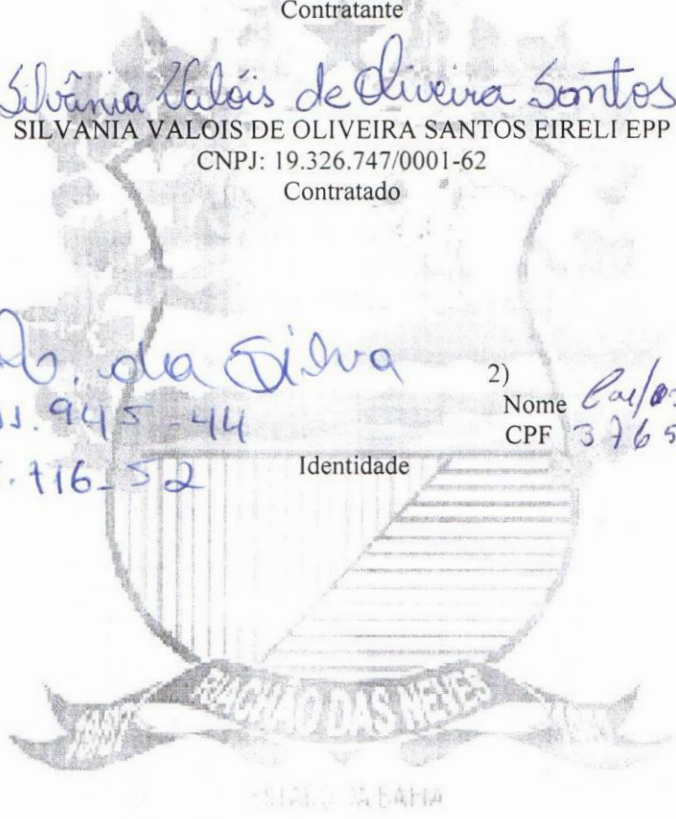 Contratante
Silvânia Valóis de Oliveira Santos
SILVANIA VALOIS DE OLIVEIRA SANTOS EIRELI EPP
CNPJ: 19.326.747/0001-62
Contratado
da Silva
.945-44
.716-52
Identidade
2)
Nome Carlos
CPF 3765
RIACHÃO DAS NEVES
ESTADO DA BAHIA